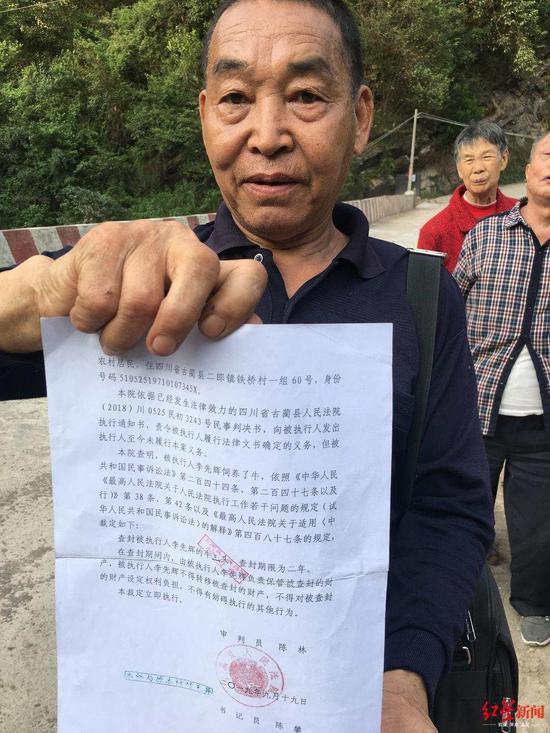 农村居民，住四川省古蔺县二郎镇铁桥村一组60号，身份
号码51052519710107345X。
本院依据已经发生法律效力的四川省古蔺县人民法院
（2018）川0525民初3243号民事判决书，向被执行人发出
执行通知书，责令被执行人履行法律文书确定的义务，但被
执行人至今未履行本案义务。
本院查明，被执行人李先辉饲养了牛，依照《中华人民
共和国民事诉讼法》第二百四十四条，第二百四十七条以及
《最高人民法院关于人民法院执行工作若干问题的规定（试
行）》第38条，第42条以及《最高人民法院关于适用《中
华人民共和国民事诉讼法》的解释》第四百八十七条的规定，
裁定如下：
查封被执行人李先辉的牛 查封期限为二年。
在查封期间内，由被执行人李先辉负责保管被查封的财
产，被执行人李先辉不得转移被查封的财产，不得对被查封
的财产设定权利负担，不得有妨碍执行的其他行为。
本裁定立即执行。
审判员 陈林
二〇一九年九月十九日
书记员 陈肇
红星新闻